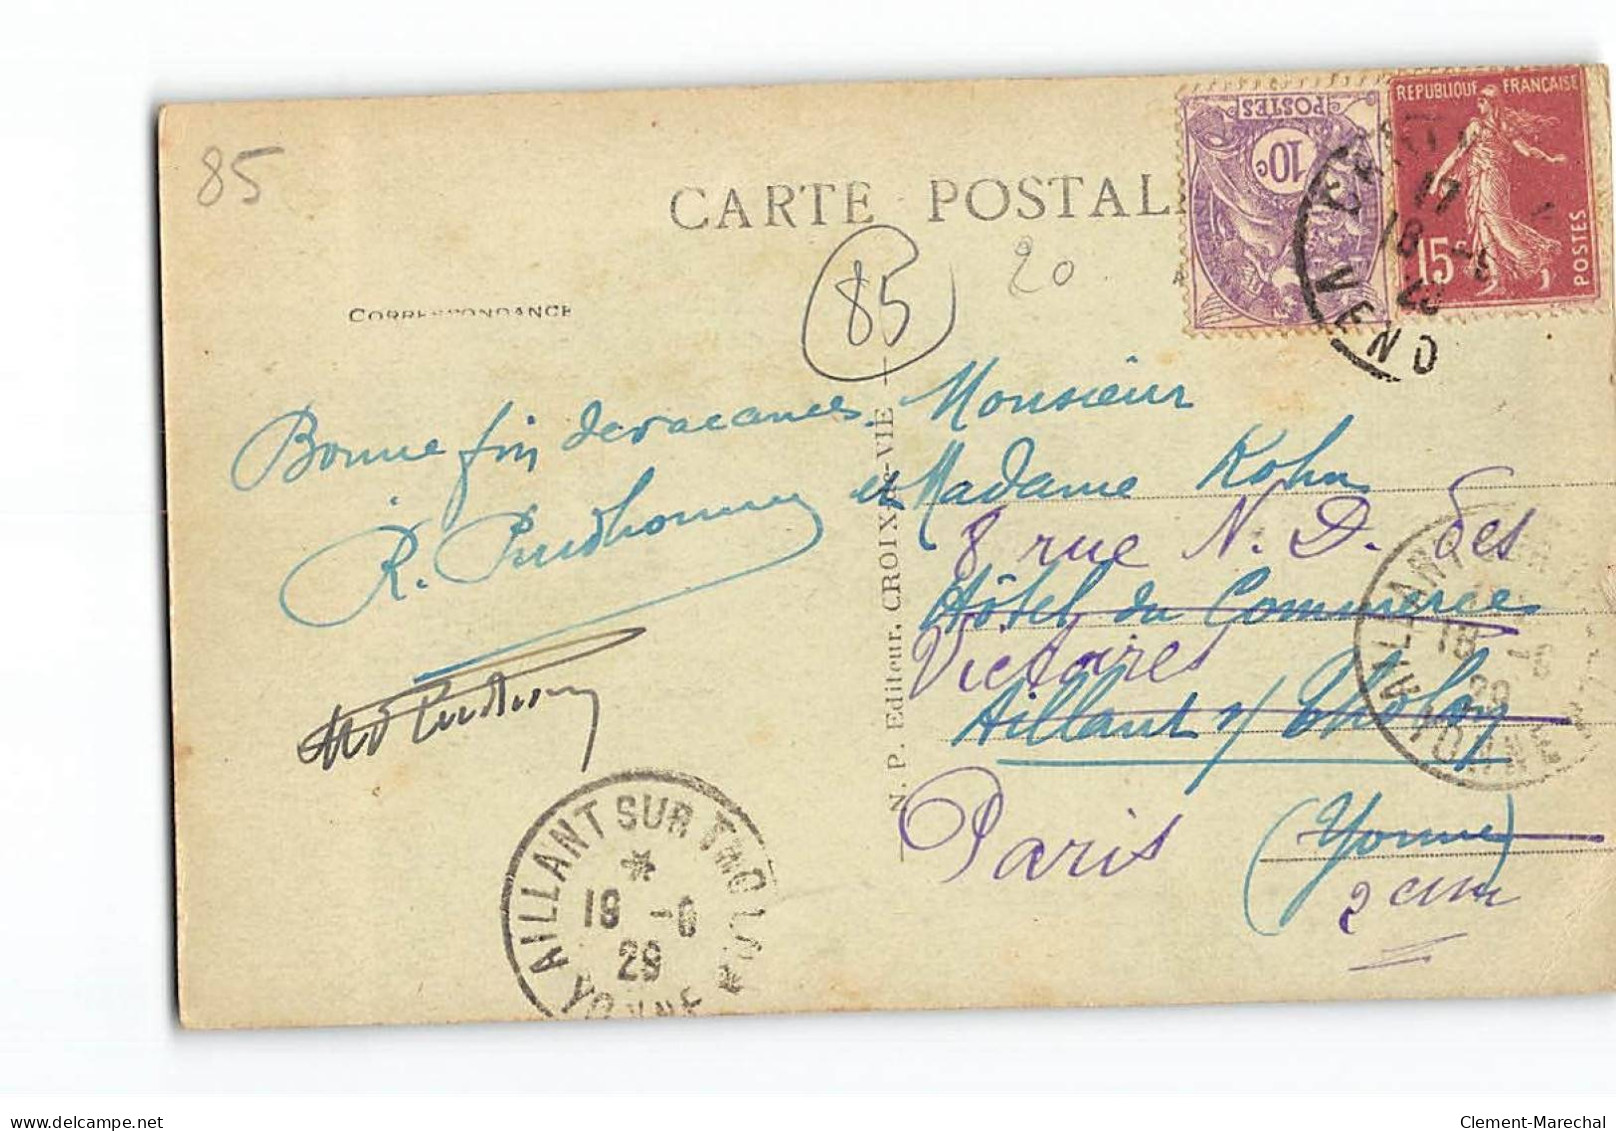 85
CARTE POSTAL
20
85
CORRESPONDANCE
POSTES
10c
REPUBLIQUE FRANÇAISE
15c
POSTES
17
18 -6
29
VEND
Bonne fin de vacances.
R. Prudhomme
Monsieur
et Madame Kohn
8 rue N. D. des
Hôtel du Commerce
Victoires
Aillant s/ Tholon
Paris
(Yonne)
N. P. Editeur, CROIX-de-VIE
AILLANT SUR THOLON
19 -6
29
YONNE
AILLANT SUR
19 -6
29
YONNE
Clement-Marechal